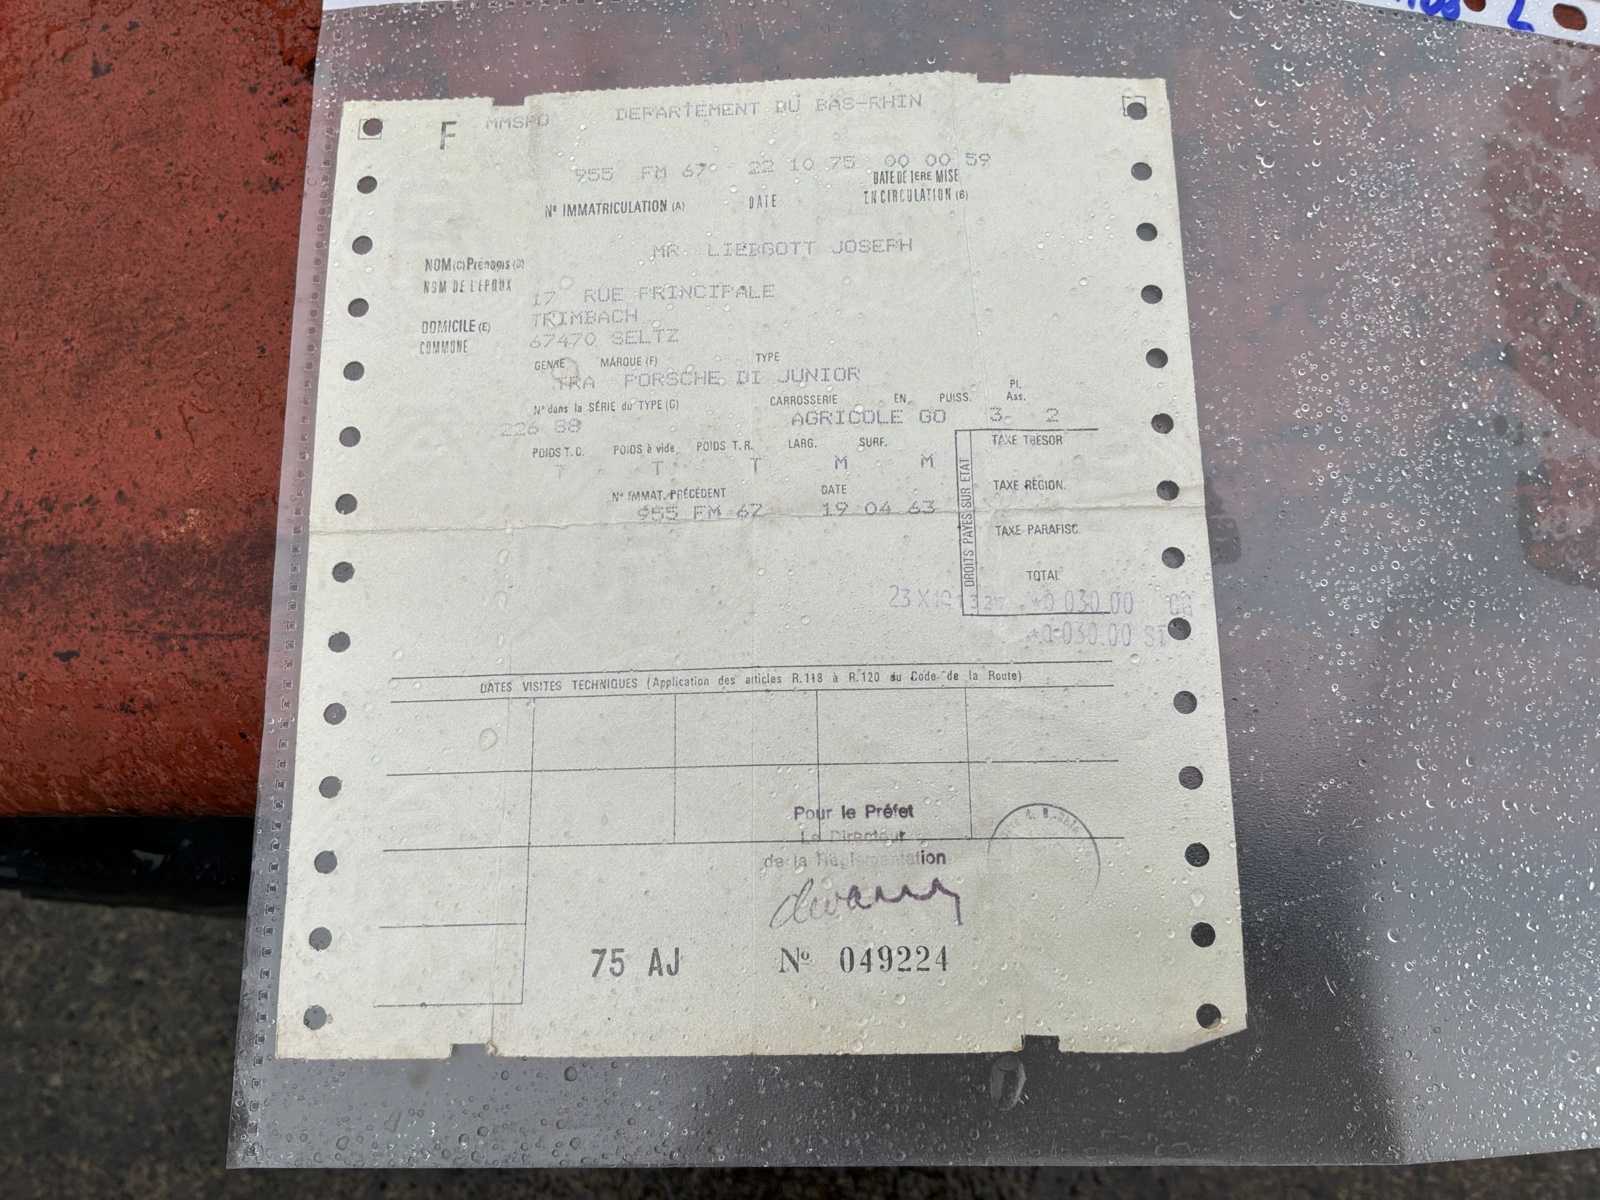 F MMSPO DEPARTEMENT DU BAS-RHIN
955 FM 67 22 10 75 00 00 59
N° IMMATRICULATION (A) DATE DATE DE 1ERE MISE EN CIRCULATION (B)
MR LIEBGOTT JOSEPH
NOM (C) Prénoms (D)
NOM DE L'EPOUX
17 RUE PRINCIPALE
DOMICILE (E) TRIMBACH
COMMUNE 67470 SELTZ
GENRE MARQUE (F) TYPE
TRA PORSCHE DI JUNIOR
N° dans la SÉRIE du TYPE (G) CARROSSERIE EN. PUISS. Pl. Ass.
226 88 AGRICOLE GO 3 2
POIDS T.C. POIDS à vide POIDS T.R. LARG. SURF.
T T T M M
N° IMMAT. PRÉCÉDENT DATE
955 FM 67 19 04 63
DROITS PAYES SUR ETAT
TAXE TRÉSOR
TAXE RÉGION.
TAXE PARAFISC.
TOTAL
+0 030.00
+0 030.00 ST
DATES VISITES TECHNIQUES (Application des articles R.118 à R.120 du Code de la Route)
Pour le Préfet
Le Directeur
de la Réglementation
75 AJ N° 049224